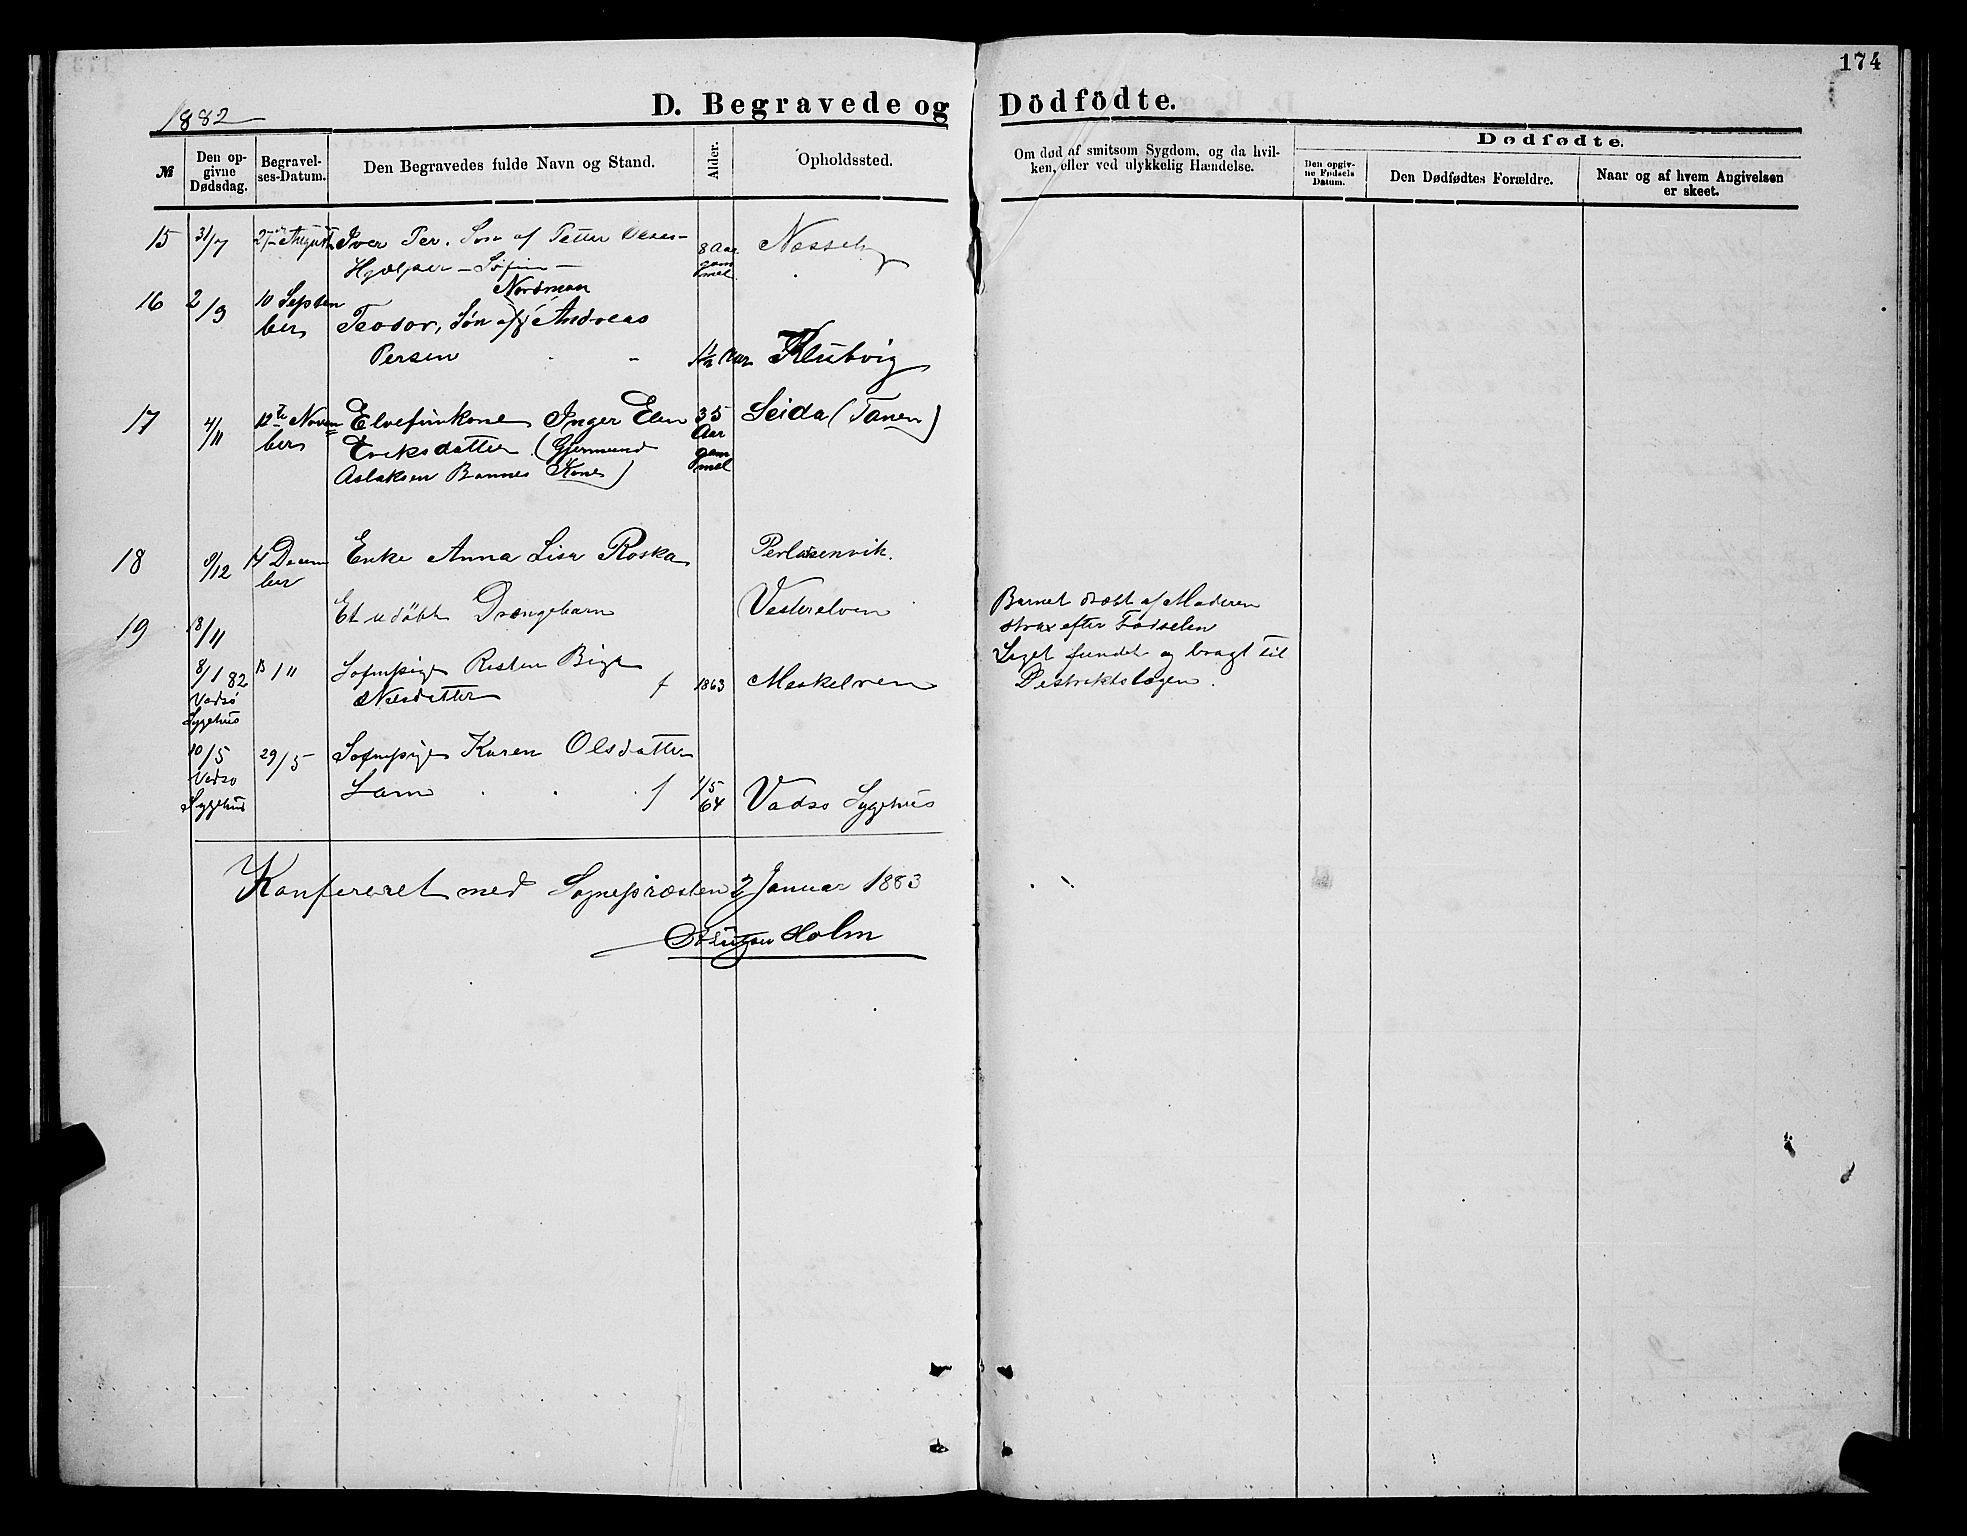 174
1882
D. Begravede og Dödfödte.
№
Den op-
givne
Dødsdag.
Begravel-
ses-Datum.
Den Begravedes fulde Navn og Stand.
Alder.
Opholdssted.
Om død af smitsom Sygdom, og da hvil-
ken, eller ved ulykkelig Hændelse.
Dødfødte.
Den opgiv-
ne Fødsels
Datum.
Den Dødfødtes Forældre.
Naar og af hvem Angivelsen
er skeet.
15 31/7 27 August Iver Per. Søn af Petter
Hjelper - Søfin - 8 Aar
gam
mel Nesseby
16 2/9 10 Septem
ber Nordman
Teodor, Søn af Andreas
Persen 1½ Aar Klubvig
17 4/11 12te Novem
ber Elvefinkone Inger Elen
Eriksdatter (Gjermund
Aslaksen Bannes Kone) 35
Aar
gam
mel Seida (Tanen)
18 8/12 14 Decem
ber Enke Anna Lisa Roska Perlasenvik.
19 18/11 Et udöbt Drengebarn Vesterelven
Barnet dræbt af Moderen
strax efter Fødselen
Liget fundet og bragt til
Destriktslægen.
8/1 82
Vadsö
Sygehus
B 1 " Sofinpige Risten Biget
Nilsdatter f 1863 Meskelven
10/5
Vadso
Sygehus
29/5 Sofinpige Karen Olsdatter
Lam f 1/5
64 Vadso Sygehus
Konfereret med Sognepræsten 2 Januar 1883
Holm